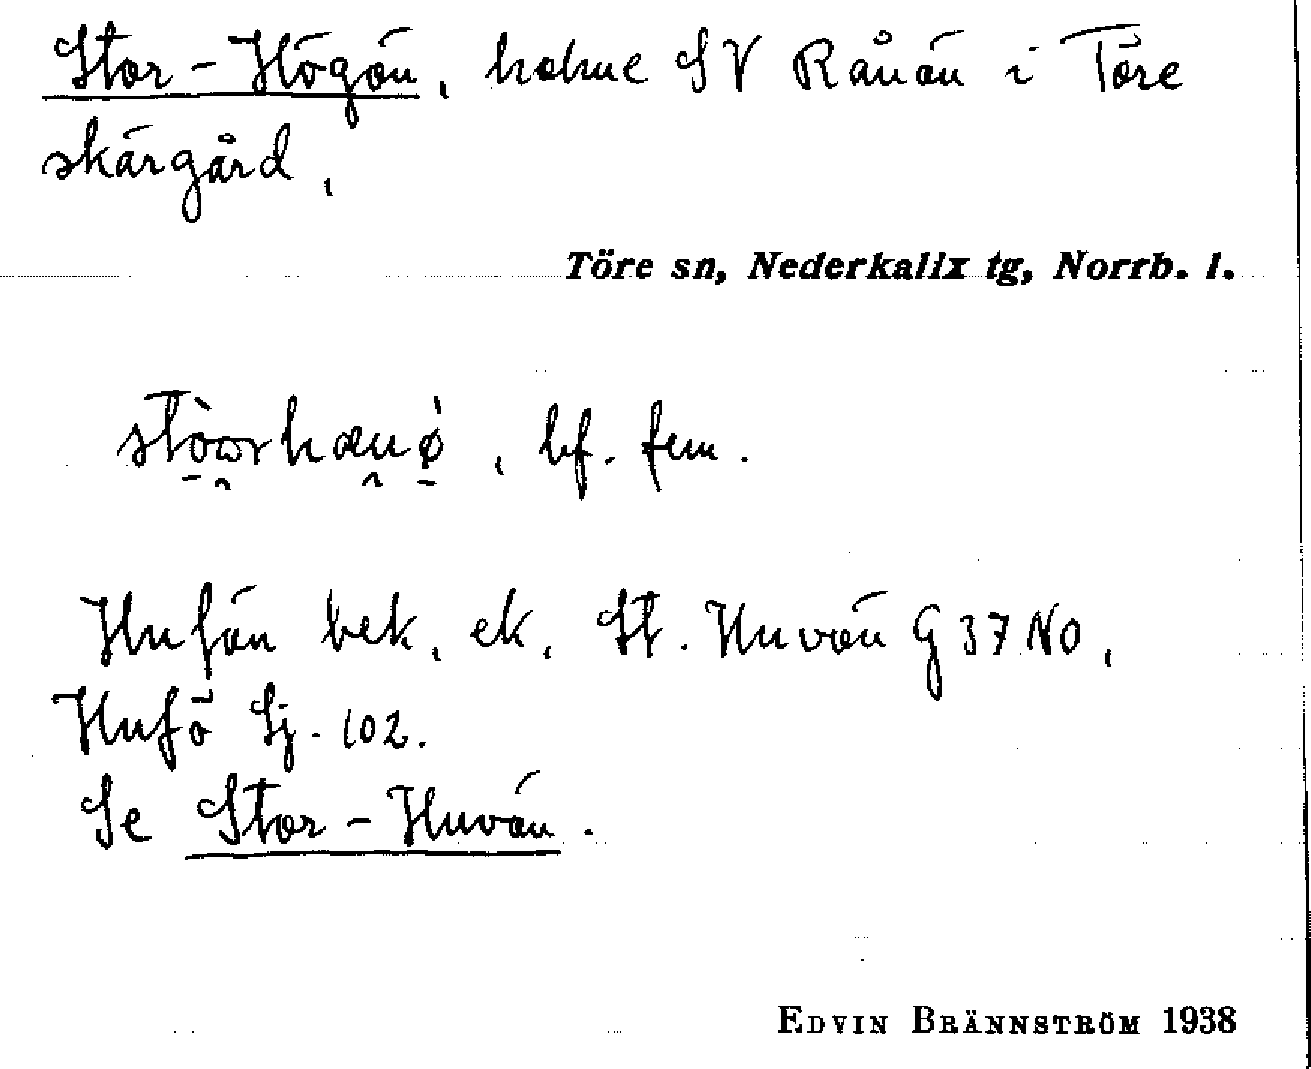 Stor-Högön, holme SV Rånön i Töre
skärgård.
Töre sn, Nederkalix tg, Norrb. l.
bf. fem.
Hufön bek. ek. St. Huvön G 37 NO,
Hufö Sj. 102.
Se Stor-Huvön.
EDVIN BRÄNNSTRÖM 1938